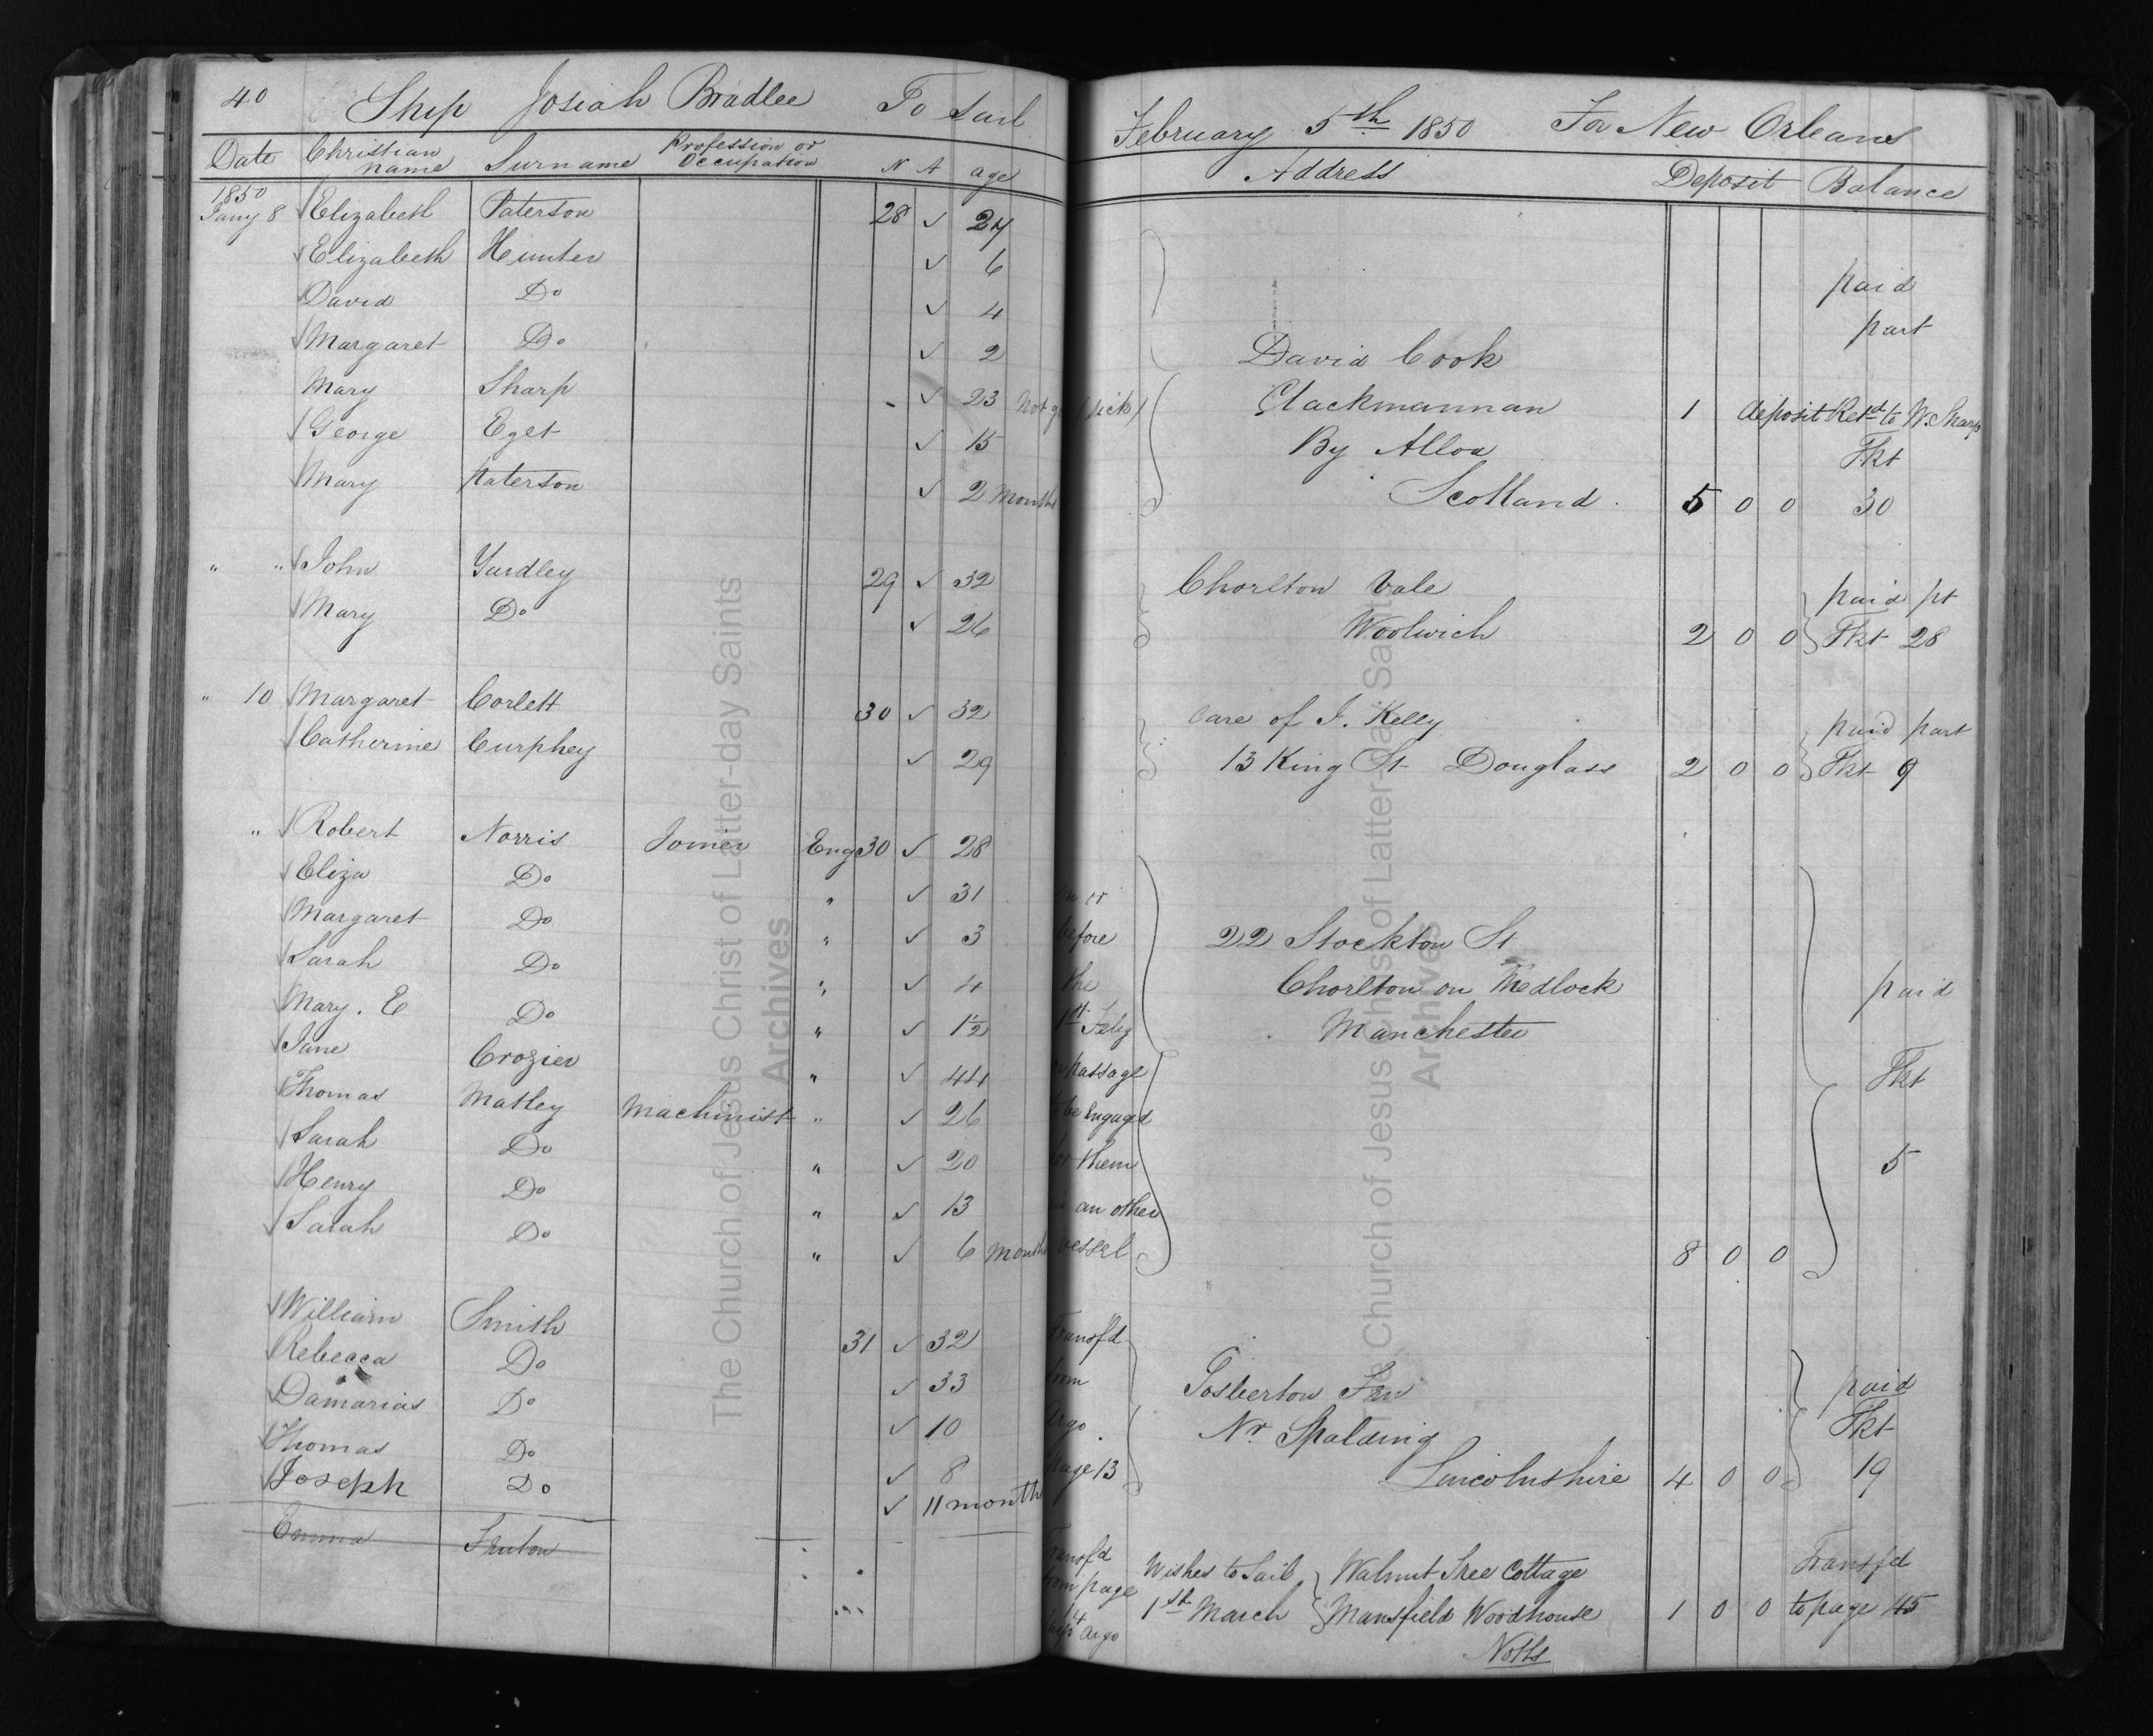 40 Ship Josiah Bradlee To Sail February 5th 1850 For New Orleans
Date Christian name Surname Profession or Occupation N A age Address Deposit Balance
1850
Jany 8 Elizabeth Paterson 28 ✓ 24
Elizabeth Hunter ✓ 6
David Do ✓ 4 paid
Margaret Do ✓ 2 David Cook part
Mary Sharp - ✓ 23 Not g (sick) Clackmannan 1 deposit Retd to W. Sharp
George Eget ✓ 15 By Alloa Tkt
Mary Paterson ✓ 2 Months Scotland. 5 0 0 30
" " John Yardley 29 ✓ 32 Chorlton Vale paid pt
Mary Do ✓ 26 Woolwich 2 0 0 Tkt 28
" 10 Margaret Corlett 30 ✓ 32 Care of J. Kelly paid part
Catherine Curphey ✓ 29 13 King St Douglass 2 0 0 Tkt 9
" Robert Norris Joiner Eng 30 ✓ 28
Eliza Do " ✓ 31 or
Margaret Do " ✓ 3 before 22 Stockton St
Sarah Do " ✓ 4 the Chorlton on Medlock paid
Mary. E Do " ✓ 1½ 1st Feby Manchester
Jane Crozier " ✓ 44 passage Tkt
Thomas Matley Machinist " ✓ 26 be engaged
Sarah Do " ✓ 20 them 5
Henry Do " ✓ 13 an other
Sarah Do " ✓ 6 Month vessel 8 0 0
William Smith 31 ✓ 32 Transfd
Rebecca Do ✓ 33 from Gosberton Fen paid
Damarias Do ✓ 10 Argo. Nr. Spalding Tkt
Thomas Do ✓ 8 page 13 Lincolnshire 4 0 0 19
Joseph Do ✓ 11 month
Emma Fenton Transfd Wishes to Sail Walnut Tree Cottage Transfd
from page 14 1st March Mansfield Woodhouse 1 0 0 to page 45
Ship Argo Notts
The Church of Jesus Christ of Latter-day Saints
Archives
The Church of Jesus Christ of Latter-day Saints
Archives